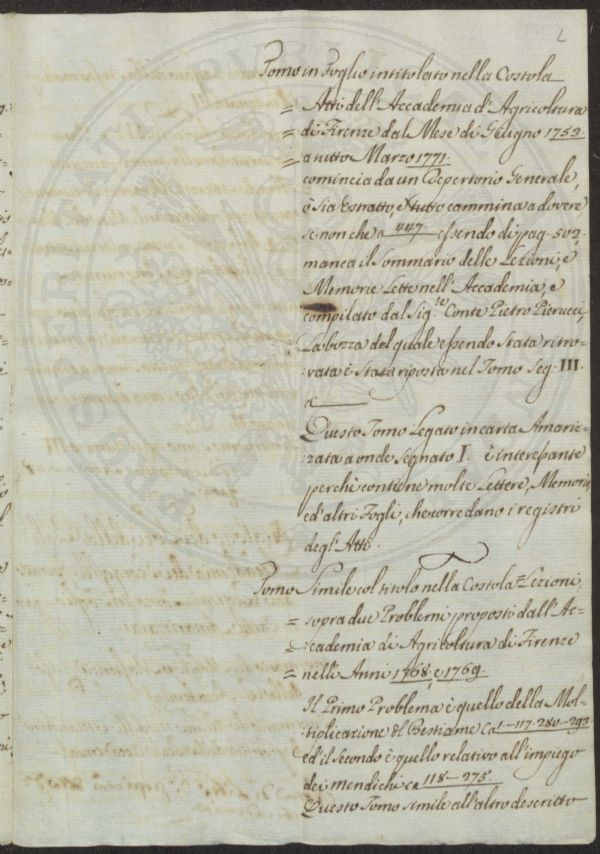 2
Tomo in Foglio intitolato nella Costola
= Atti dell'Accademia d'Agricoltura
= di Firenze dal Mese di Giugno 1753
= a tutto Marzo 1771.
comincia da un Repertorio Generale,
ò sia Estratto, e tutto cammina a dovere
se non che a 447. essendo di pag. 502,
manca il Sommario delle Lezioni, e
Memorie Lette nell'Accademia, e
compilato dal Sig.re Conte Pietro Pierucci,
la bozza del quale essendo stata ritro-
vata è stata riposta nel Tomo Seg. III.
a
Questo Tomo Legato in carta Amariz-
zata a onde segnato I. è interessante
perchè contiene molte Lettere, Memorie
ed altri Fogli, che corredano i registri
degl'Atti.
Tomo Simile col titolo nella Costola = Lezioni,
= sopra due Problemi proposti dall'Ac-
= cademia di Agricoltura di Firenze
= nelli Anni 1768, e 1769.
Il Primo Problema è quello della Mol-
tiplicazione del Bestiame Ca 1-117-280-293
ed il secondo è quello relativo all'impiego
dei mendichi ca 118-275.
Questo Tomo simile all'altro descritto